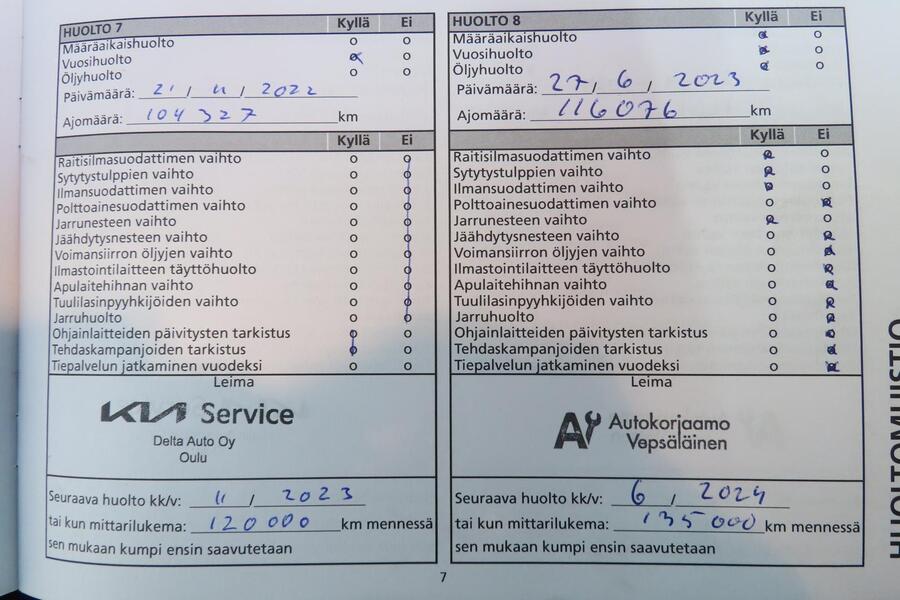 HUOLTO 7 Kyllä Ei
Määräaikaishuolto
Vuosihuolto
Öljyhuolto
Päivämäärä: 21 / 11 / 2022
Ajomäärä: 104 327 km
Kyllä Ei
Raitisilmasuodattimen vaihto
Sytytystulppien vaihto
Ilmansuodattimen vaihto
Polttoainesuodattimen vaihto
Jarrunesteen vaihto
Jäähdytysnesteen vaihto
Voimansiirron öljyjen vaihto
Ilmastointilaitteen täyttöhuolto
Apulaitehihnan vaihto
Tuulilasinpyyhkijöiden vaihto
Jarruhuolto
Ohjainlaitteiden päivitysten tarkistus
Tehdaskampanjoiden tarkistus
Tiepalvelun jatkaminen vuodeksi
Leima
KIA Service
Delta Auto Oy
Oulu
Seuraava huolto kk/v: 11 / 2023
tai kun mittarilukema: 120 000 km mennessä
sen mukaan kumpi ensin saavutetaan
HUOLTO 8 Kyllä Ei
Määräaikaishuolto
Vuosihuolto
Öljyhuolto
Päivämäärä: 27 / 6 / 2023
Ajomäärä: 116076 km
Kyllä Ei
Raitisilmasuodattimen vaihto
Sytytystulppien vaihto
Ilmansuodattimen vaihto
Polttoainesuodattimen vaihto
Jarrunesteen vaihto
Jäähdytysnesteen vaihto
Voimansiirron öljyjen vaihto
Ilmastointilaitteen täyttöhuolto
Apulaitehihnan vaihto
Tuulilasinpyyhkijöiden vaihto
Jarruhuolto
Ohjainlaitteiden päivitysten tarkistus
Tehdaskampanjoiden tarkistus
Tiepalvelun jatkaminen vuodeksi
Leima
Autokorjaamo
Vepsäläinen
Seuraava huolto kk/v: 6 / 2024
tai kun mittarilukema: 135 000 km mennessä
sen mukaan kumpi ensin saavutetaan
7
HUOLTOMUISTIO